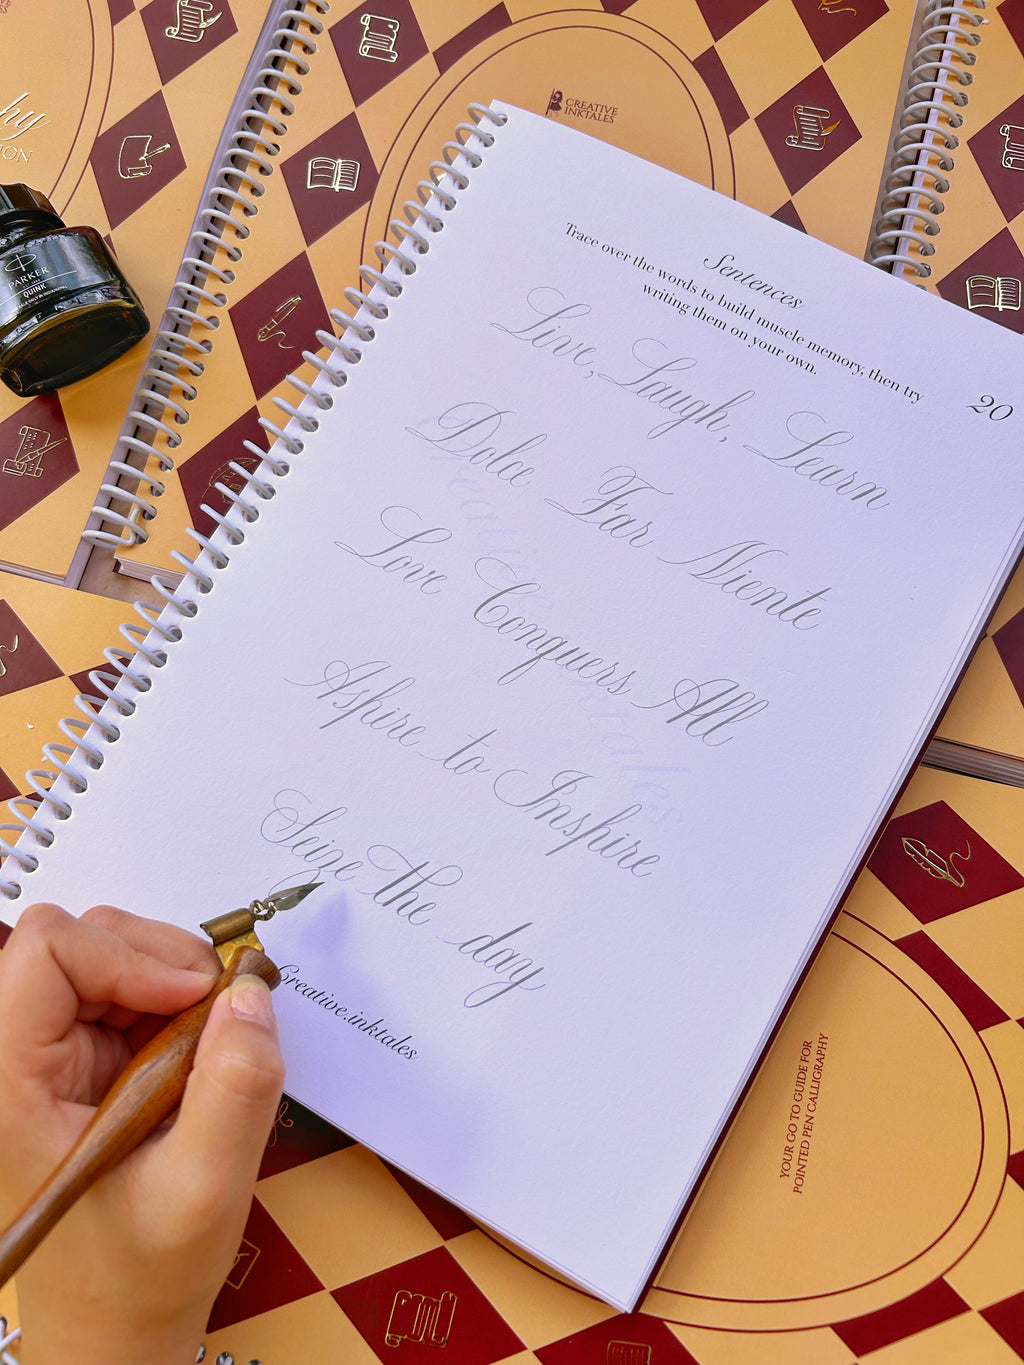 CREATIVE
INKTALES
PARKER
QUINK
Sentences
Trace over the words to build muscle memory, then try
writing them on your own.
20
Live, Laugh, Learn
Dolce Far Niente
Love Conquers All
Aspire to Inspire
Seize the day
Creative.inktales
YOUR GO TO GUIDE FOR
POINTED PEN CALLIGRAPHY